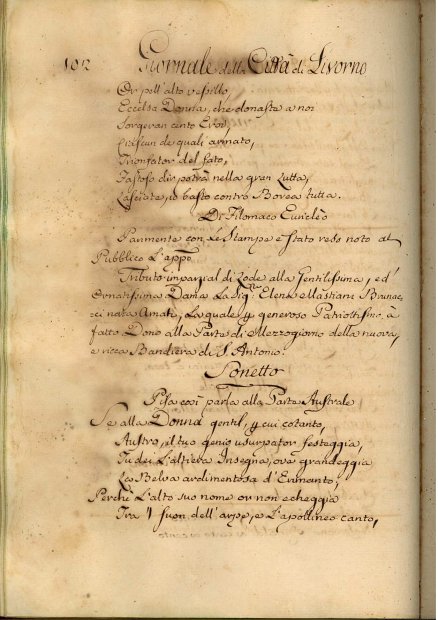 102 Giornale della Città di Livorno
Or pell'alto vessillo,
Eccelsa Donna, che donasti a noi
Sorgeran cento Eroi,
Ciascun de quali armato,
Trionfator del fato,
Fastoso dir potrà nella gran Lutta,
Lasciate, io basto contro Borea tutta.
Di Filomaco Euricleo
Parimente con Le Stampe è stato reso noto al
Pubblico L'app.
Tributo imparzial di Lode alla Gentilissima, ed
Ornatissima Dama La Sig.ra Elena Mastiani Brunac,
ci nata Amati, La quale generoso Patriottismo à
fatto Dono alla Parte di Mezzogiorno della nuova,
e ricca Bandiera di S. Antonio.
Sonetto
Pisa così parla alla Parte Australe
Se alla Donna gentil, cui cotanto,
Austro, il tuo genio usurpator festeggia,
Tu dei L'altiera Insegna, ove grandeggia
La Belva ardimentosa d'Erimanto;
Perchè L'alto suo nome or non echeggia
Tra 'l suon dell'arpe, e L'apollineo canto,